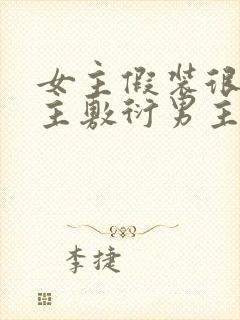 女主假装很
主敷衍男主
李捷